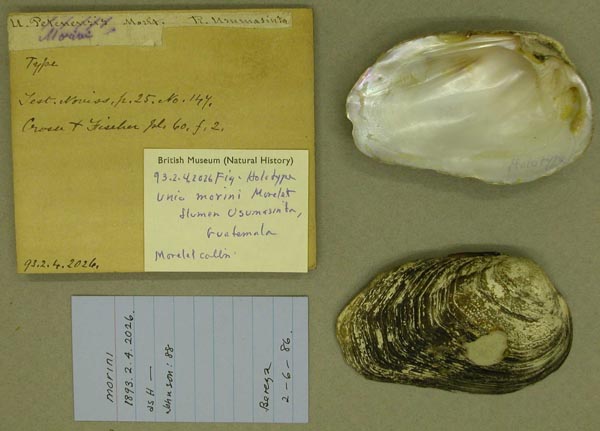 U. Morelt. R. Usumasinta
Morini
Type
Test. Noviss. p. 25. No. 147.
Crosse & Fischer pl. 60. f. 2.
93.2.4.2026.
British Museum (Natural History)
93.2.4.2026 Fig. Holotype
Unio morini Morelet
flumen Usumasinta,
Guatemala
Morelet colln.
morini
1893.2.4.2026.
as H —
Johnson: 88
Bereza
2-6-86.
Holotype